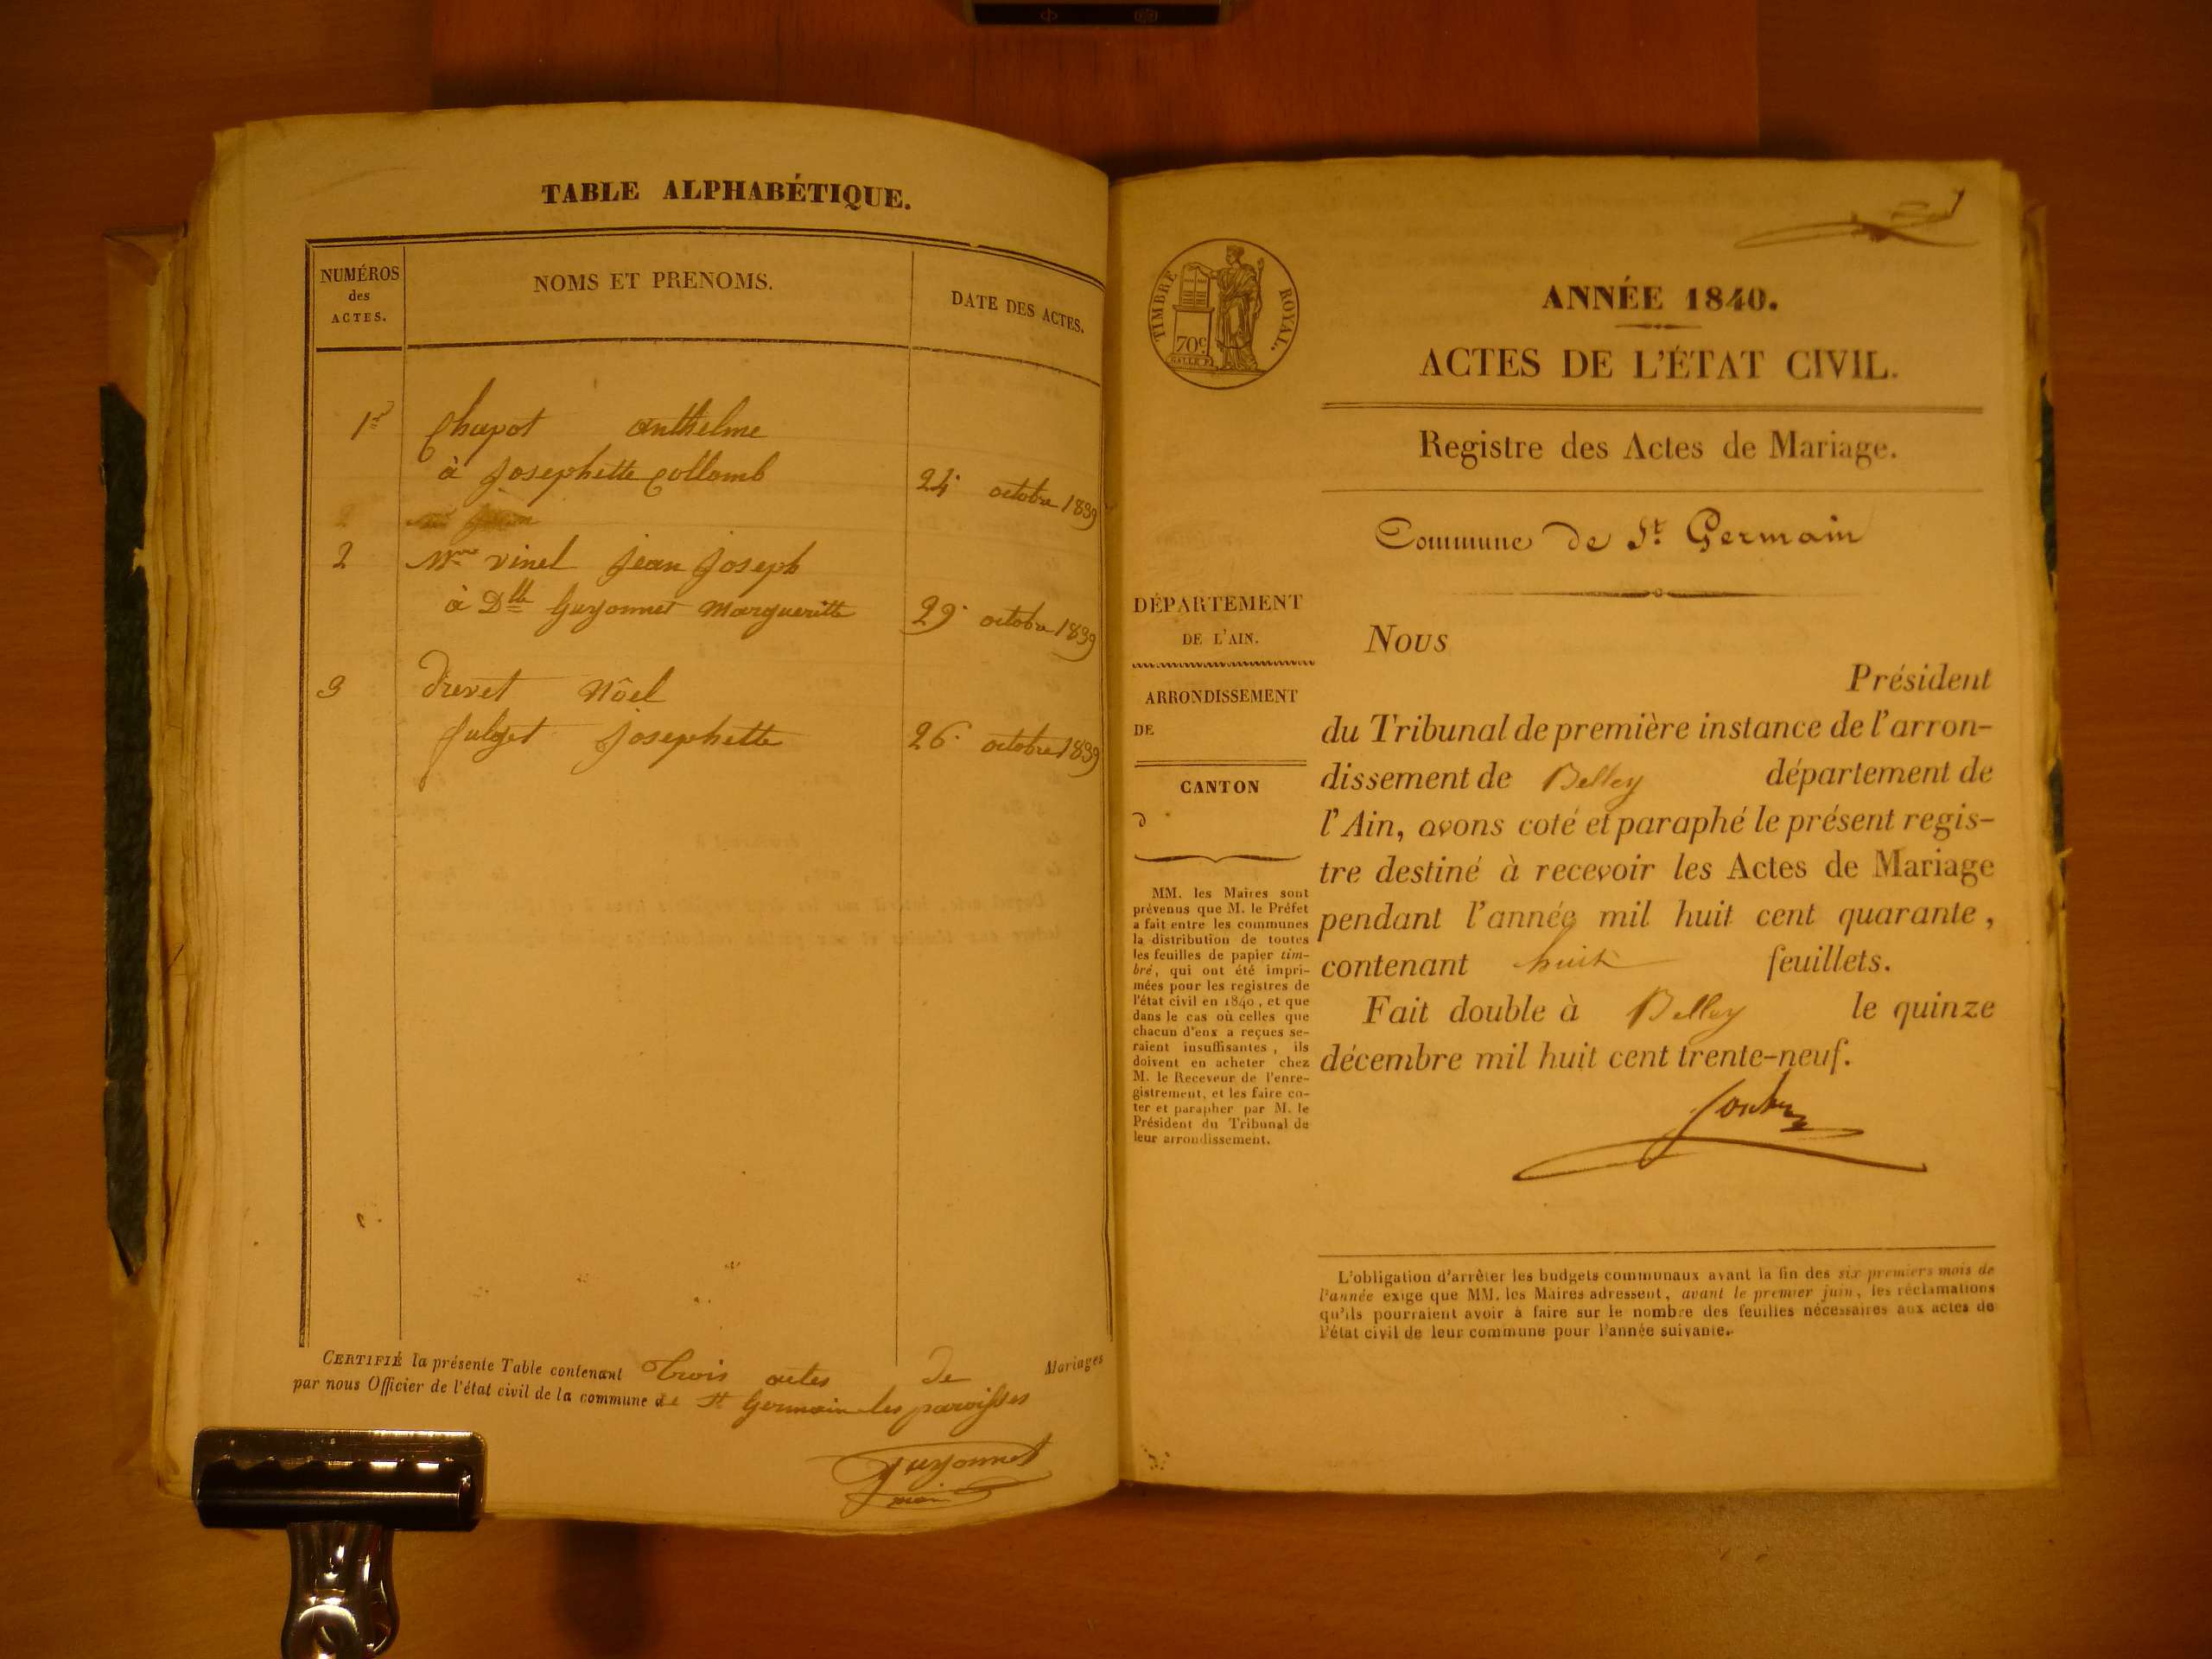 TABLE ALPHABÉTIQUE.
NUMÉROS
des
ACTES.
NOMS ET PRENOMS.
DATE DES ACTES.
1er Chapot anthelme
à Josephette Collomb 24 octobre 1839
2 Mr vinel jean joseph
à Dlle Guyonnet Margueritte 29 octobre 1839
3 Drevet Nôel
Josephette 26 octobre 1839
CERTIFIÉ la présente Table contenant Trois actes de Mariages
par nous Officier de l'état civil de la commune de St Germain les paroisses
Guyonnet
maire
1
TIMBRE ROYAL.
70c
ANNÉE 1840.
ACTES DE L'ÉTAT CIVIL.
Registre des Actes de Mariage.
Commune de St. Germain
DÉPARTEMENT
DE L'AIN.
ARRONDISSEMENT
DE
CANTON
d
MM. les Maires sont
prévenus que M. le Préfet
a fait entre les communes
la distribution de toutes
les feuilles de papier tim-
bré, qui ont été impri-
mées pour les registres de
l'état civil en 1840, et que
dans le cas où celles que
chacun d'eux a reçues se-
raient insuffisantes, ils
doivent en acheter chez
M. le Receveur de l'enre-
gistrement, et les faire co-
ter et parapher par M. le
Président du Tribunal de
leur arrondissement.
Nous
Président
du Tribunal de première instance de l'arron-
dissement de Belley département de
l'Ain, avons coté et paraphé le présent regis-
tre destiné à recevoir les Actes de Mariage
pendant l'année mil huit cent quarante,
contenant huit feuillets.
Fait double à Belley le quinze
décembre mil huit cent trente-neuf.
L'obligation d'arrêter les budgets communaux avant la fin des six premiers mois de
l'année exige que MM. les Maires adressent, avant le premier juin, les réclamations
qu'ils pourraient avoir à faire sur le nombre des feuilles nécessaires aux actes de
l'état civil de leur commune pour l'année suivante.